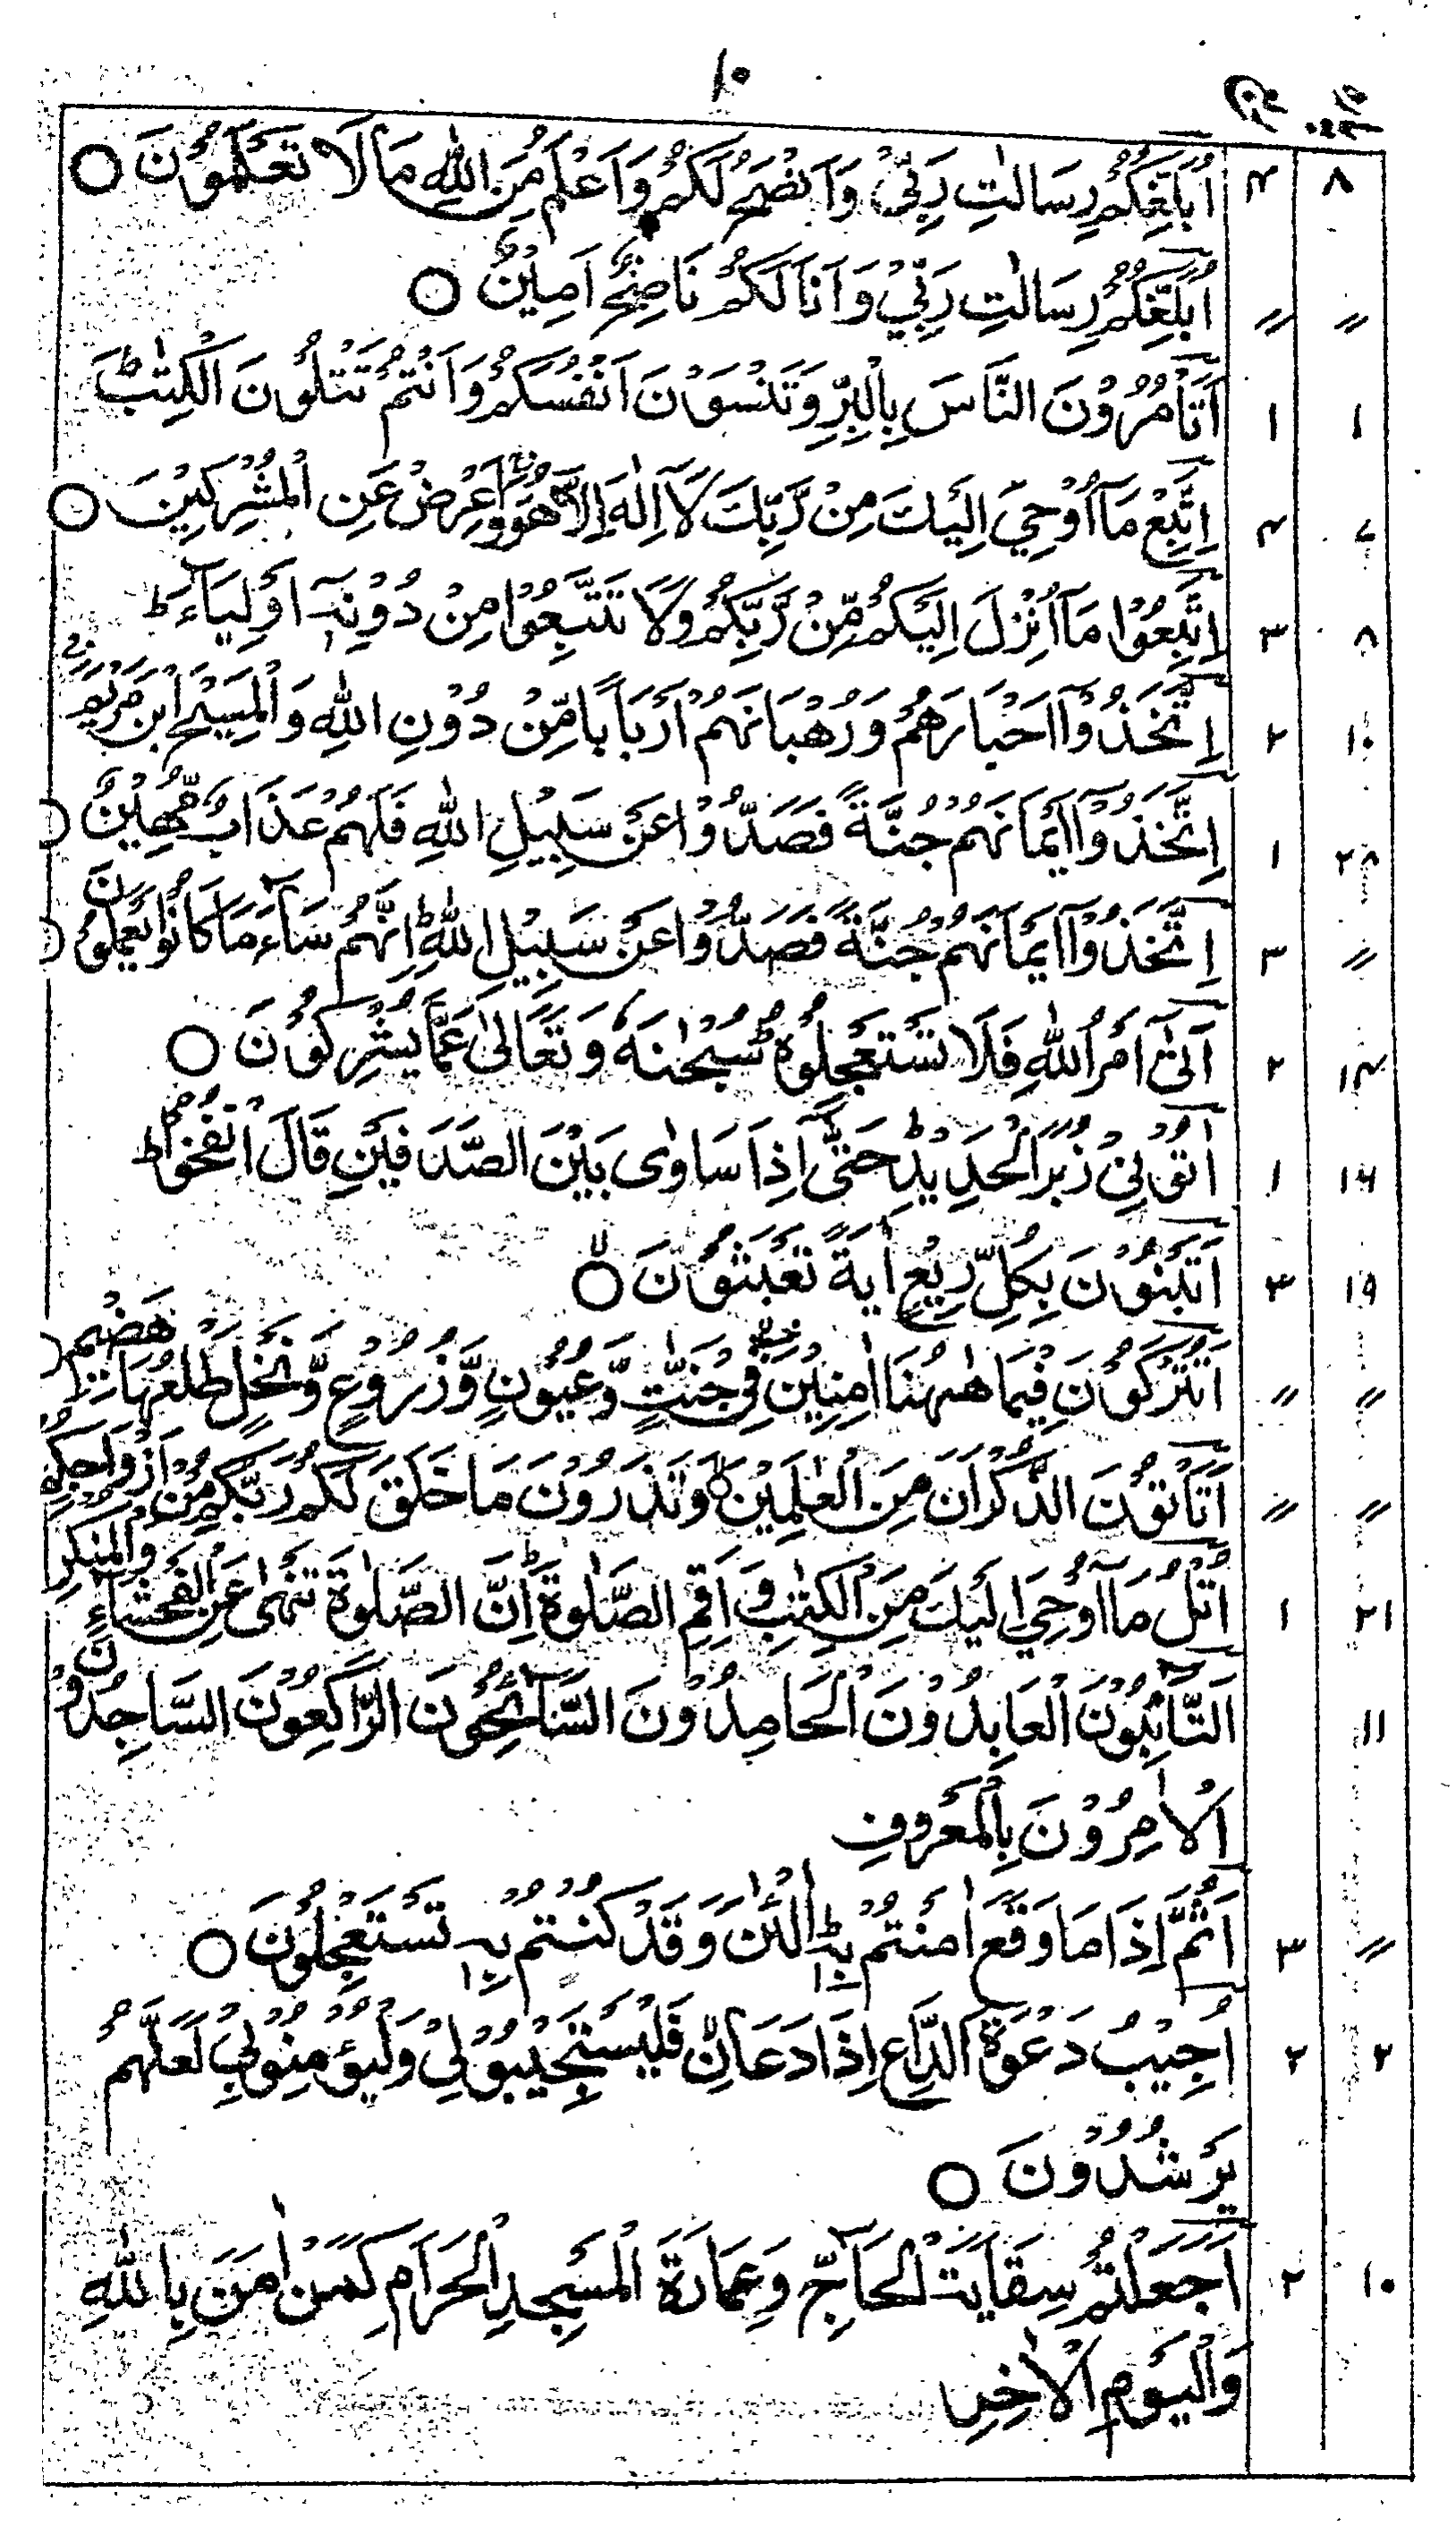 ١٠
٨ ٣ اُبَلِّغُكُمْ رِسَالٰتِ رَبِّيْ وَاَنْصَحُ لَكُمْ وَاَعْلَمُ مِنَ اللّٰهِ مَا لَا تَعْلَمُوْنَ ○
〃 〃 اُبَلِّغُكُمْ رِسَالٰتِ رَبِّيْ وَاَنَا لَكُمْ نَاصِحٌ اَمِيْنٌ ○
١ ١ اَتَأْمُرُوْنَ النَّاسَ بِالْبِرِّ وَتَنْسَوْنَ اَنْفُسَكُمْ وَاَنْتُمْ تَتْلُوْنَ الْكِتٰبَ ط
٧ ٣ اِتَّبِعْ مَآ اُوْحِيَ اِلَيْكَ مِنْ رَّبِّكَ لَآ اِلٰهَ اِلَّا هُوَ وَاَعْرِضْ عَنِ الْمُشْرِكِيْنَ ○
٨ ٣ اِتَّبِعُوْا مَآ اُنْزِلَ اِلَيْكُمْ مِّنْ رَّبِّكُمْ وَلَا تَتَّبِعُوْا مِنْ دُوْنِهٖٓ اَوْلِيَآءَ ط
١٠ ٢ اِتَّخَذُوْٓا اَحْبَارَهُمْ وَرُهْبَانَهُمْ اَرْبَابًا مِّنْ دُوْنِ اللّٰهِ وَالْمَسِيْحَ ابْنَ مَرْيَمَ
٢٨ ١ اِتَّخَذُوْٓا اَيْمَانَهُمْ جُنَّةً فَصَدُّوْا عَنْ سَبِيْلِ اللّٰهِ فَلَهُمْ عَذَابٌ مُّهِيْنٌ ○
〃 ٣ اِتَّخَذُوْٓا اَيْمَانَهُمْ جُنَّةً فَصَدُّوْا عَنْ سَبِيْلِ اللّٰهِ ط اِنَّهُمْ سَآءَ مَا كَانُوْا يَعْمَلُوْنَ ○
١٤ ٢ اَتٰىٓ اَمْرُ اللّٰهِ فَلَا تَسْتَعْجِلُوْهُ ط سُبْحٰنَهٗ وَتَعَالٰى عَمَّا يُشْرِكُوْنَ ○
١٦ ١ اٰتُوْنِيْ زُبَرَ الْحَدِيْدِ ط حَتّٰىٓ اِذَا سَاوٰى بَيْنَ الصَّدَفَيْنِ قَالَ انْفُخُوْا ط
١٩ ٣ اَتَبْنُوْنَ بِكُلِّ رِيْعٍ اٰيَةً تَعْبَثُوْنَ ○
〃 〃 اَتُتْرَكُوْنَ فِيْمَا هٰهُنَا اٰمِنِيْنَ فِيْ جَنّٰتٍ وَّعُيُوْنٍ وَّزُرُوْعٍ وَّنَخْلٍ طَلْعُهَا هَضِيْمٌ ○
〃 〃 اَتَأْتُوْنَ الذُّكْرَانَ مِنَ الْعٰلَمِيْنَ وَتَذَرُوْنَ مَا خَلَقَ لَكُمْ رَبُّكُمْ مِّنْ اَزْوَاجِكُمْ
٢١ ١ اُتْلُ مَآ اُوْحِيَ اِلَيْكَ مِنَ الْكِتٰبِ وَاَقِمِ الصَّلٰوةَ ط اِنَّ الصَّلٰوةَ تَنْهٰى عَنِ الْفَحْشَآءِ وَالْمُنْكَرِ
١١ اَلتَّآئِبُوْنَ الْعَابِدُوْنَ الْحَامِدُوْنَ السَّآئِحُوْنَ الرَّاكِعُوْنَ السَّاجِدُوْنَ
الْاٰمِرُوْنَ بِالْمَعْرُوْفِ
〃 ٣ اَثُمَّ اِذَا مَا وَقَعَ اٰمَنْتُمْ بِهٖ ط اٰلْـٰٔنَ وَقَدْ كُنْتُمْ بِهٖ تَسْتَعْجِلُوْنَ ○
٢ ٢ اُجِيْبُ دَعْوَةَ الدَّاعِ اِذَا دَعَانِ فَلْيَسْتَجِيْبُوْا لِيْ وَلْيُؤْمِنُوْا بِيْ لَعَلَّهُمْ
يَرْشُدُوْنَ ○
١٠ ٢ اَجَعَلْتُمْ سِقَايَةَ الْحَآجِّ وَعِمَارَةَ الْمَسْجِدِ الْحَرَامِ كَمَنْ اٰمَنَ بِاللّٰهِ
وَالْيَوْمِ الْاٰخِرِ